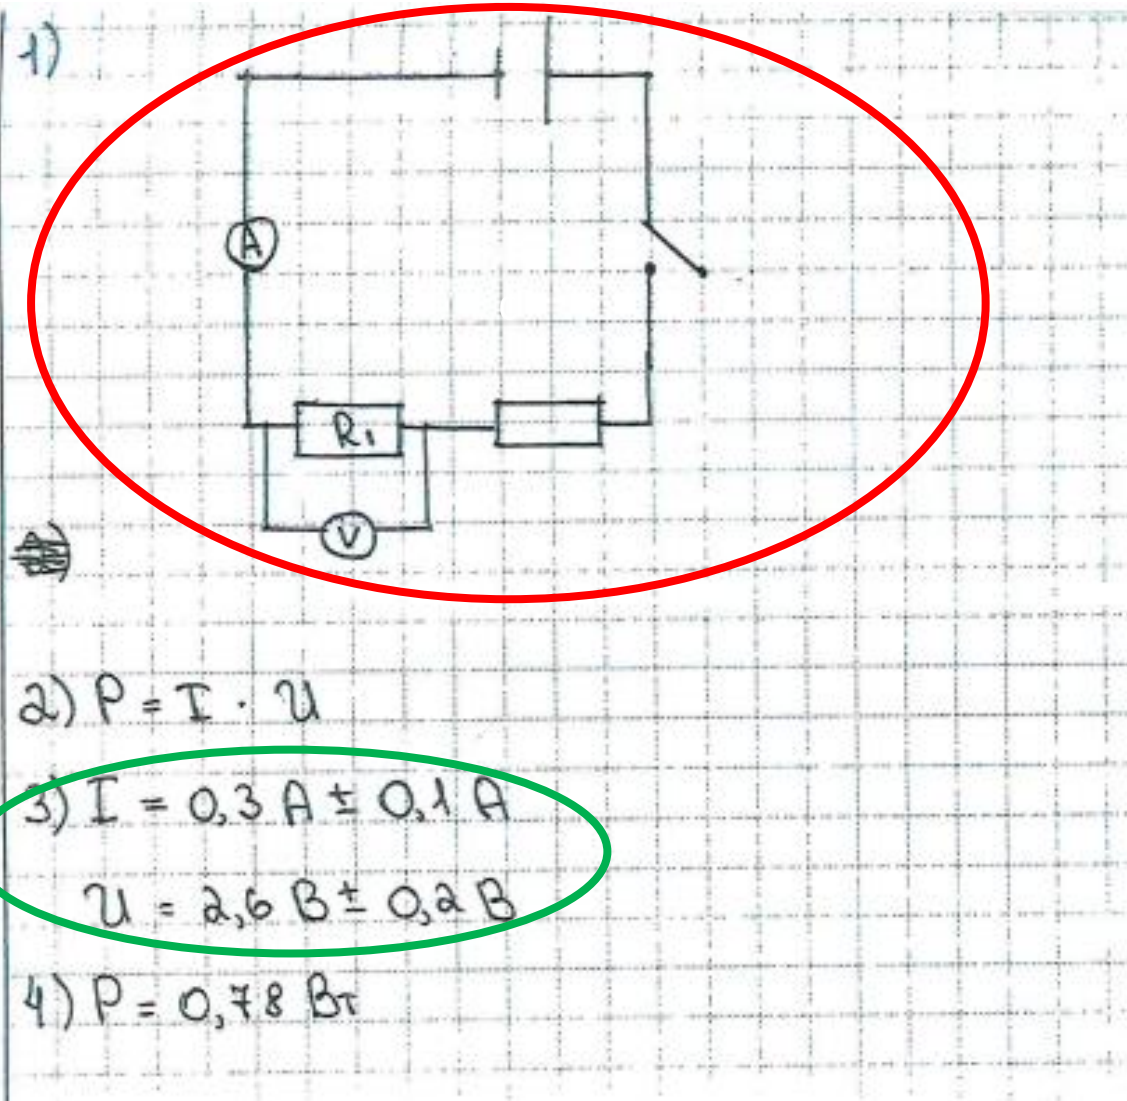 1)
A
R₁
V
2) P = I · U
3) I = 0,3 А ± 0,1 А
U = 2,6 В ± 0,2 В
4) P = 0,78 Вт